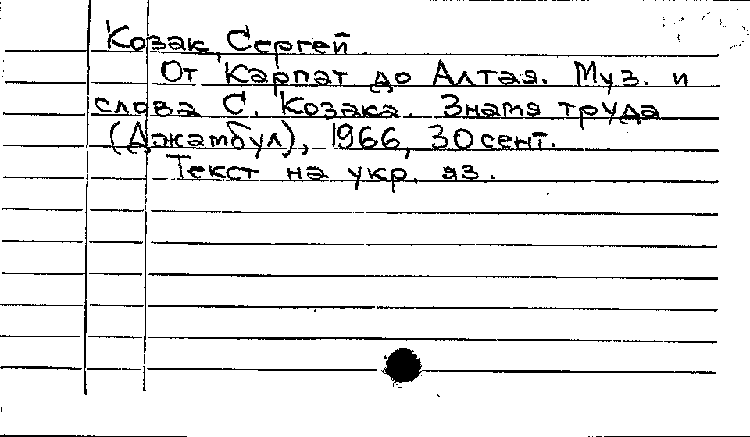 Козак, Сергей.
От Карпат до Алтая. Муз. и
слова С. Козака. Знамя труда
(Джамбул), 1966, 30 сент.
Текст на укр. яз.